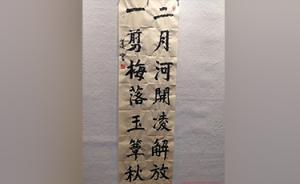 二月河開凌解放
一剪梅落玉簟秋